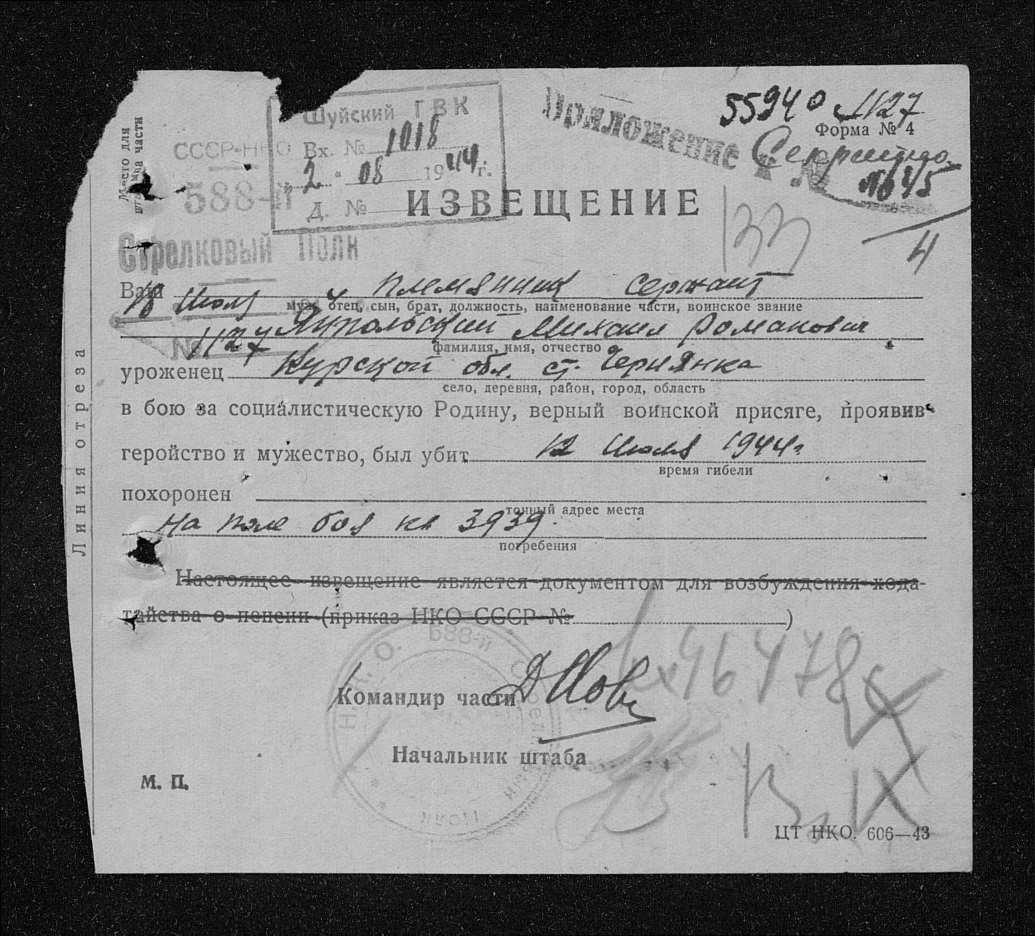 Место для
штампа части
Шуйский ГВК
Вх. № 1018
2 · 08 1944 г.
Д. №
СССР-НКО
588-й
Стрелковый Полк
18 Июля
№ 1127
55940 №1127
Приложение к №
Форма № 4
№645
4
133
ИЗВЕЩЕНИЕ
Ваш племянник сержант
муж, отец, сын, брат, должность, наименование части, воинское звание
Михаил Романович
фамилия, имя, отчество
уроженец Курской обл. ст. Чернянка
село, деревня, район, город, область
в бою за социалистическую Родину, верный воинской присяге, проявив
геройство и мужество, был убит 12 Июля 1944 г
время гибели
похоронен
точный адрес места
на поле боя кв 3939.
погребения
Настоящее извещение является документом для возбуждения хода-
тайства о пенсии (приказ НКО СССР № )
Н.К.О. 588-й Стрелковый Полк
вх 46478с
Командир части
Начальник штаба
13/IX
М. П.
ЦТ НКО. 606—43
Линия отреза